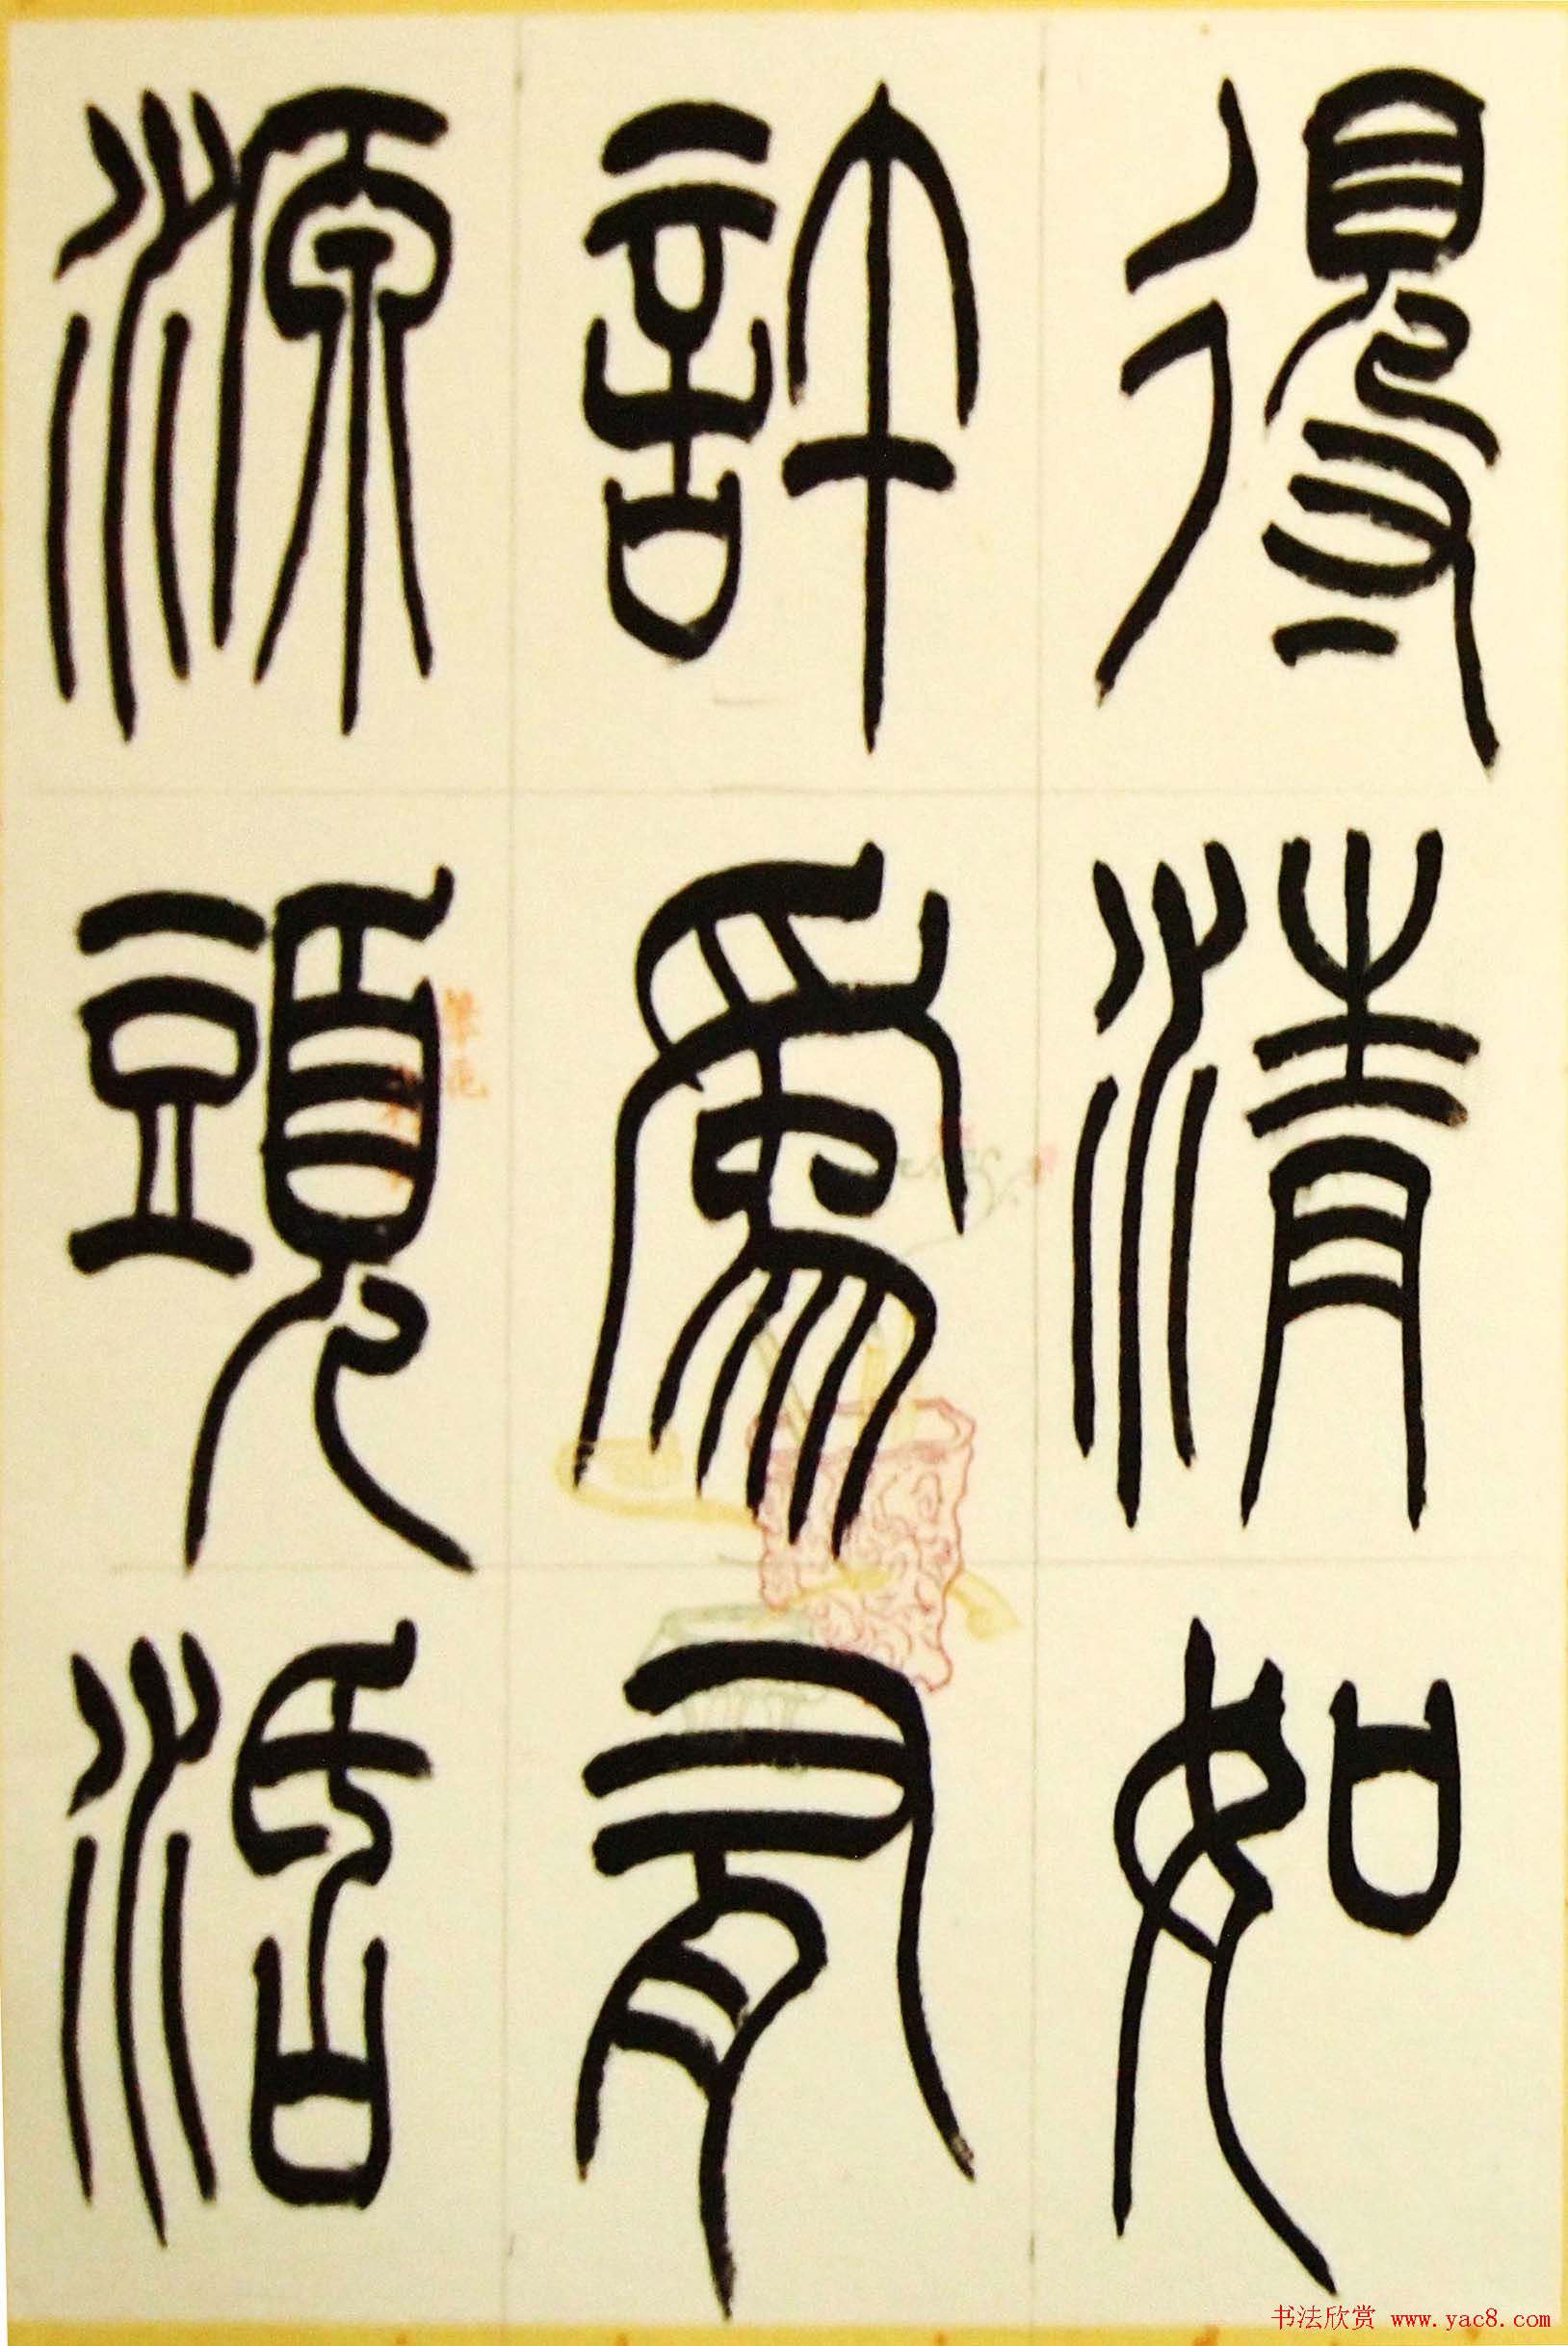 得清如
許為有
源頭活
书法欣赏 www.yac8.com